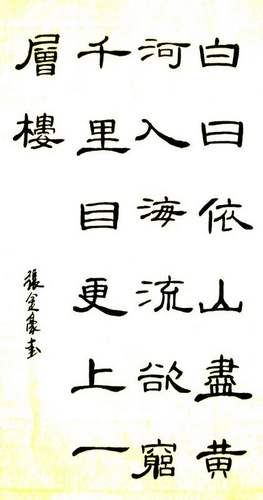 白日依山盡黄
河入海流欲窮
千里目更上一
層樓
張金豪書